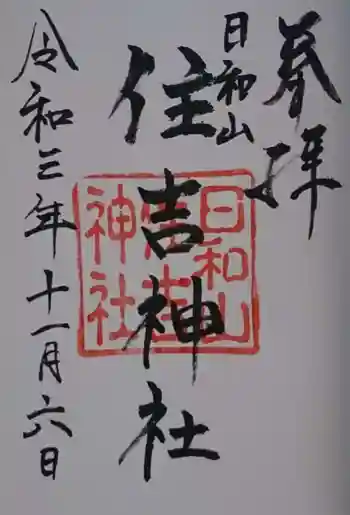 奉拝
日和山
住吉神社
令和三年十一月六日
日和山
住吉
神社